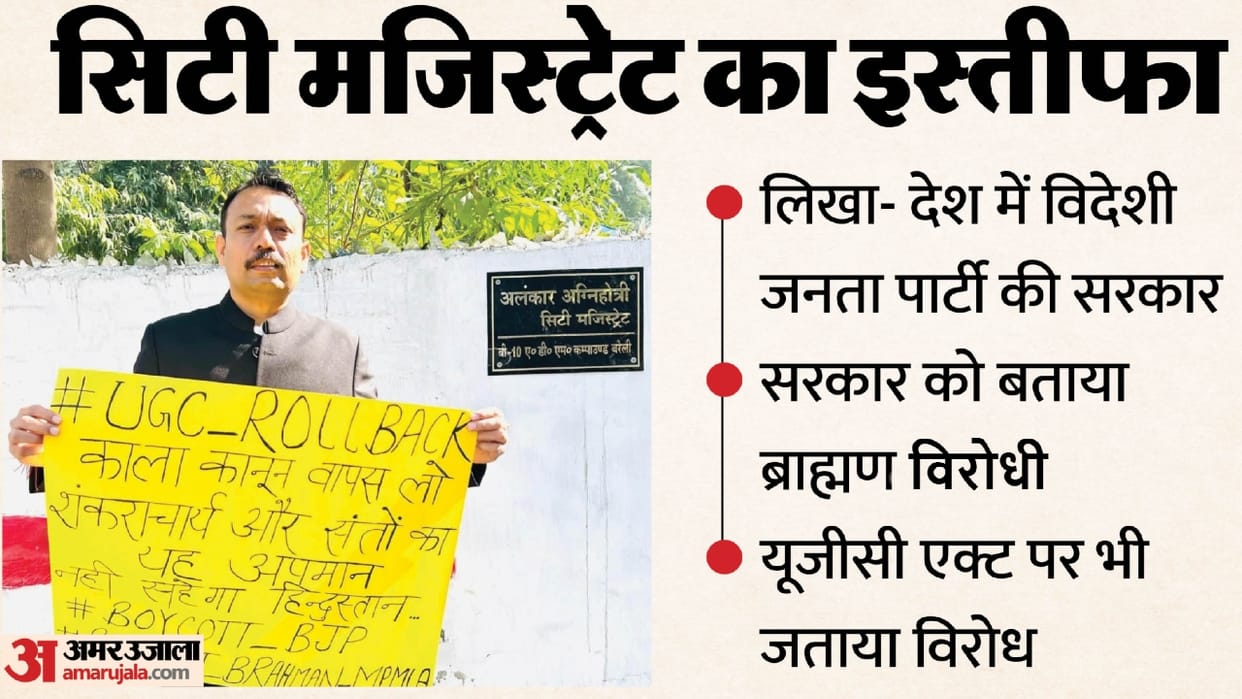 सिटी मजिस्ट्रेट का इस्तीफा
लिखा- देश में विदेशी
जनता पार्टी की सरकार
सरकार को बताया
ब्राह्मण विरोधी
यूजीसी एक्ट पर भी
जताया विरोध
अलंकार अग्निहोत्री
सिटी मजिस्ट्रेट
बी-10 ए० डी० एम० कम्पाउण्ड बरेली
#UGC_ROLLBACK
काला कानून वापस लो
शंकराचार्य और संतों का
यह अपमान
नही सहेगा हिन्दुस्तान...
#BOYCOTT_BJP
BRAHMAN_MPMLA
अ अमर उजाला
amarujala.com